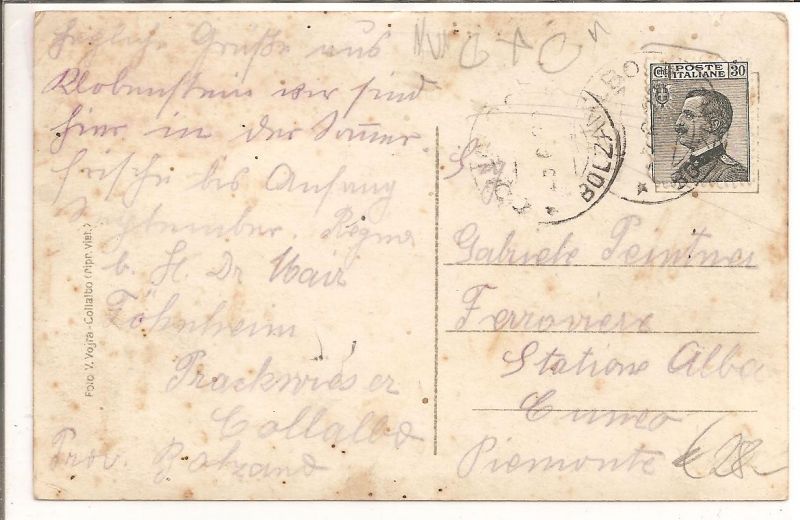 Herzliche Grüße aus
Klobenstein wir sind
hier in der Sommer.
frische bis Anfang
September. Regina
b. H. Dr Mair
Föhnheim
Prackwieser
Collalbo
Prov. Bolzano
Foto V. Vojra - Collalbo (ripr. viet.)
POSTE
ITALIANE
Cent 30
BOLZANO
Sig
Gabriele Peintner
Ferroviere
Statione Alba
Cuneo
Piemonte
€ 28-